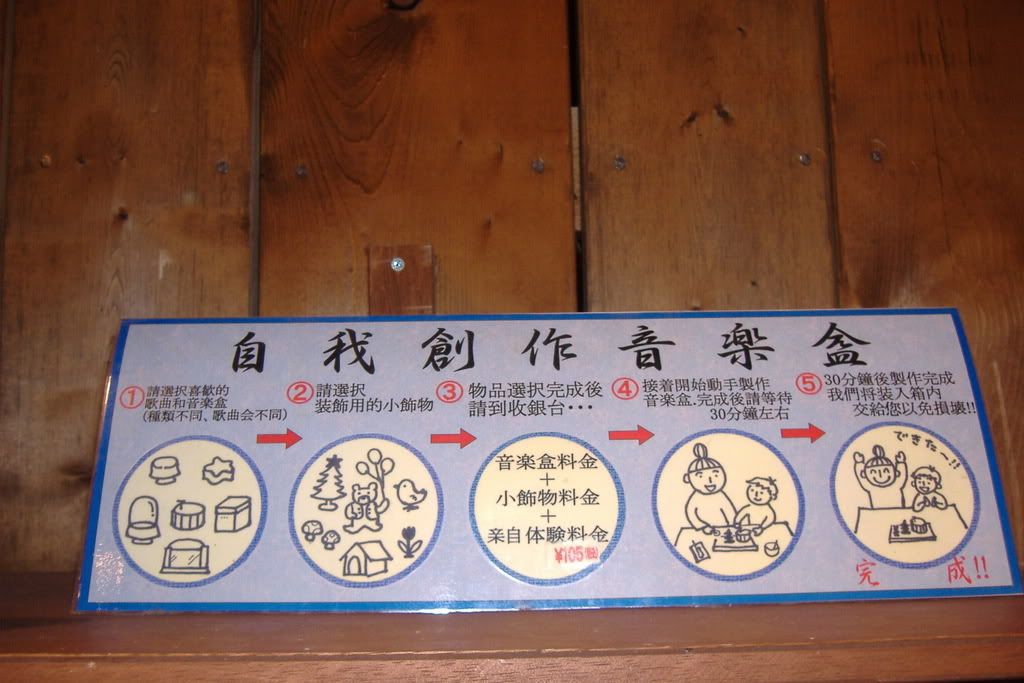 自我創作音楽盒
① 請選択喜歓的
歌曲和音楽盒
(種類不同、歌曲会不同)
② 請選択
装飾用的小飾物
③ 物品選択完成後
請到收銀台・・・
音楽盒料金
+
小飾物料金
+
亲自体験料金
¥105(税)
④ 接着開始動手製作
音楽盒.完成後請等待
30分鐘左右
⑤ 30分鐘後製作完成
我們将装入箱内
交給您以免損壊!!
できたー!!
完 成!!